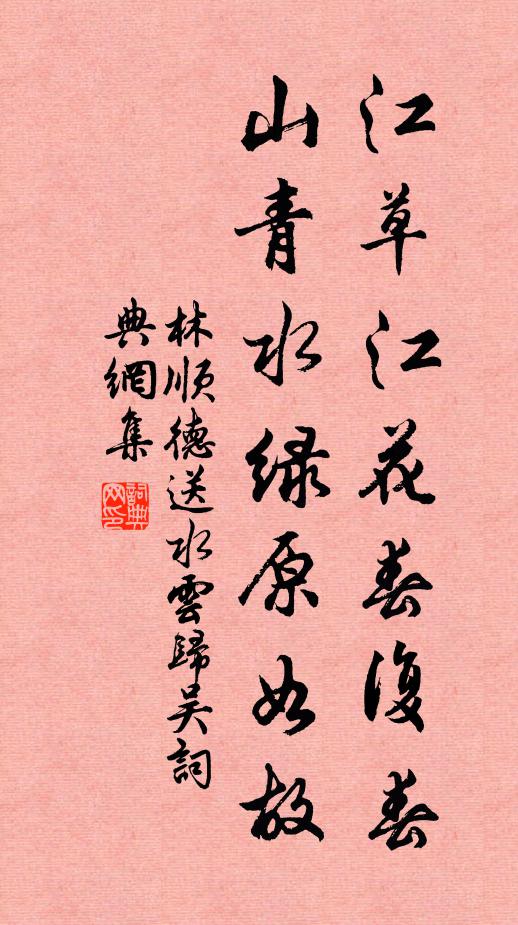 江草江花春復春
山青水綠原如故
林順德送水雲歸吴詞
典網集
詞典
网印